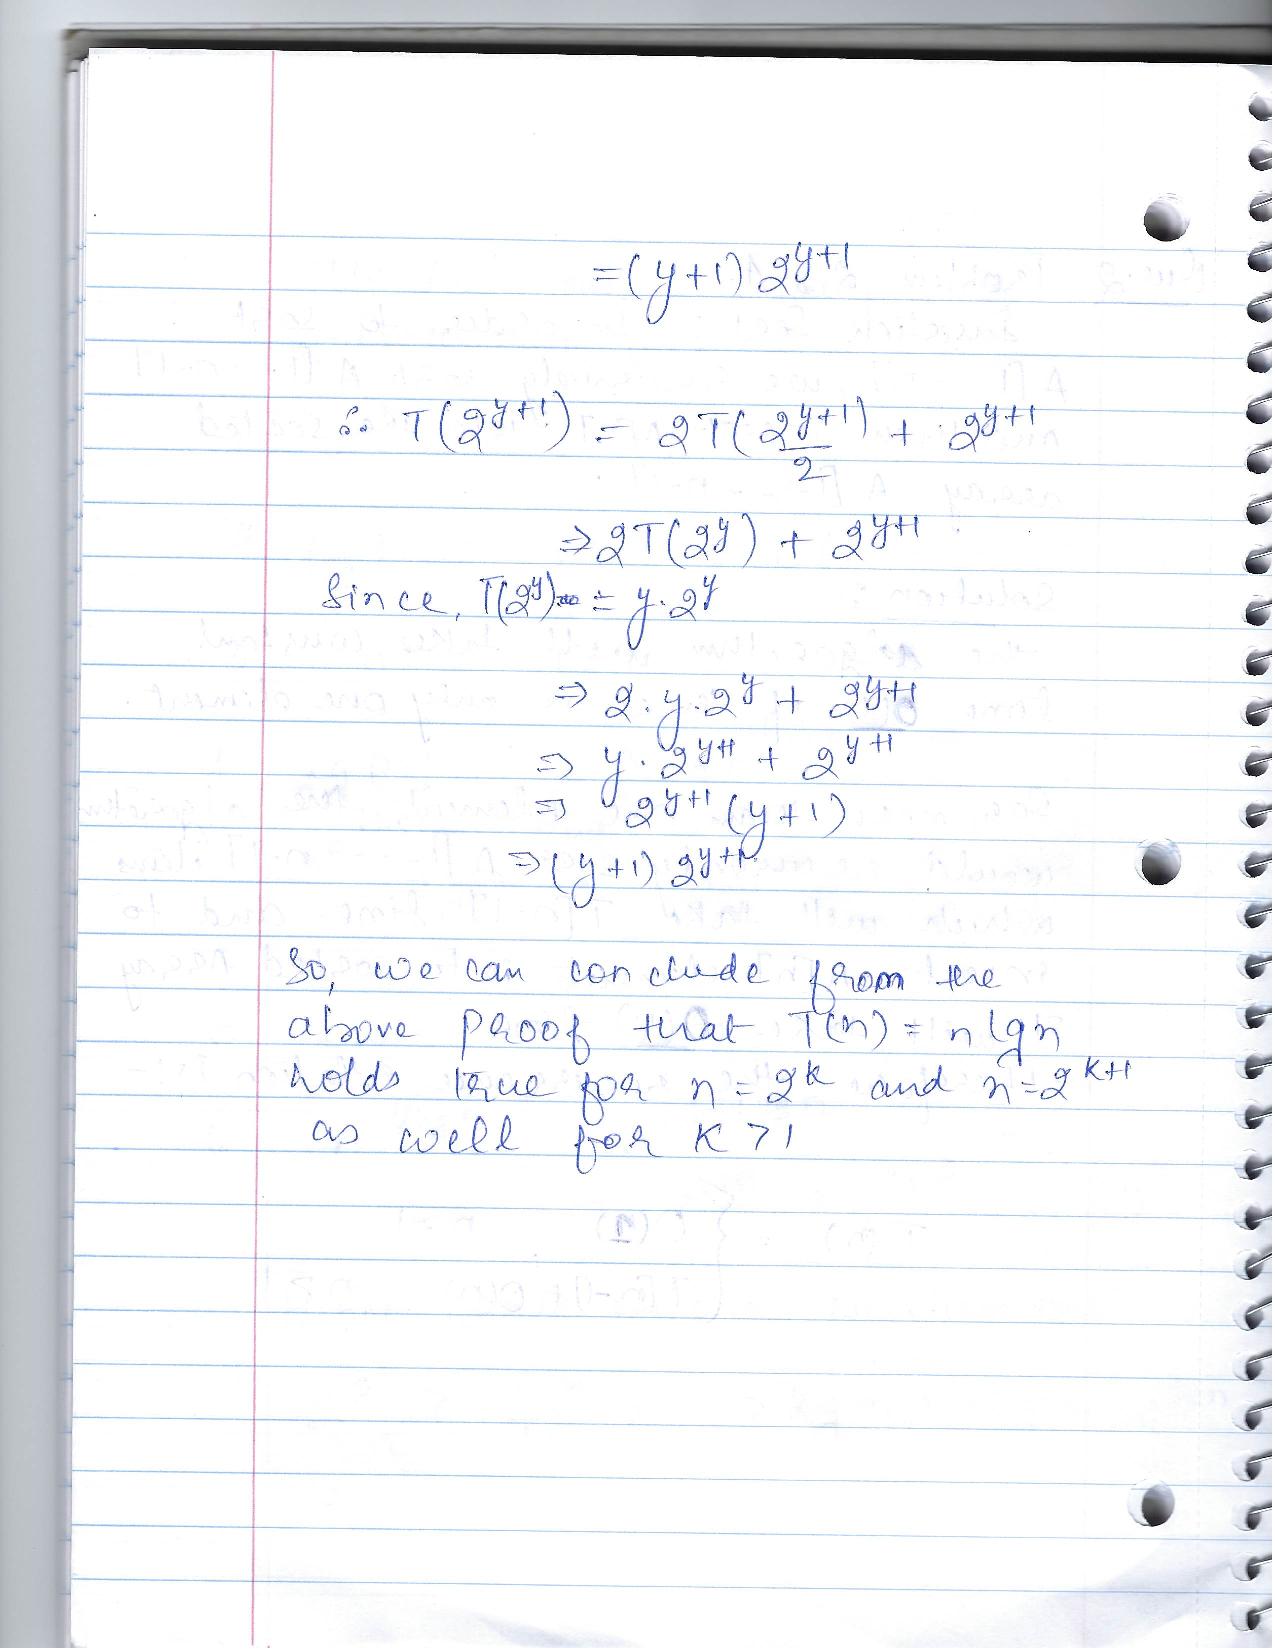 =(y+1) 2^{y+1}
∴ T(2^{y+1}) = 2T(2^{y+1}/2) + 2^{y+1}
⇒ 2T(2^y) + 2^{y+1}
Since, T(2^y) = y·2^y
⇒ 2·y·2^y + 2^{y+1}
⇒ y·2^{y+1} + 2^{y+1}
⇒ 2^{y+1} (y+1)
⇒ (y+1) 2^{y+1}
So, we can conclude from the
above proof that T(n) = n lg n
holds true for n = 2^k and n = 2^{k+1}
as well for K > 1